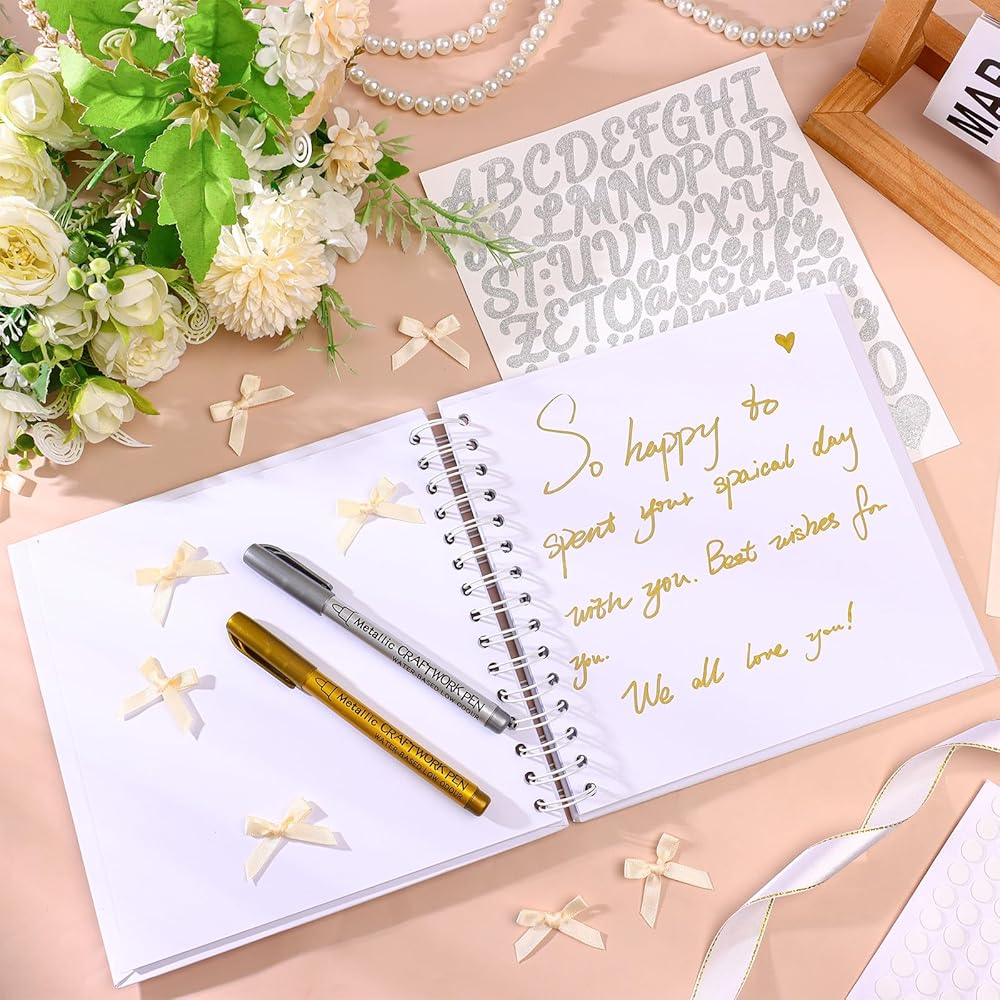 MAR
ABCDEFGHI
LMNOPQR
ST:UVWXYA
ZETOabcedfge
So happy to
spent your spaical day
with you. Best wishes for
you.
We all love you!
Metallic CRAFTWORK PEN
WATER-BASED LOW ODOUR
Metallic CRAFTWORK PEN
WATER-BASED LOW ODOUR